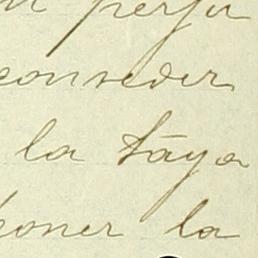 perju
conseder
la taya
poner la